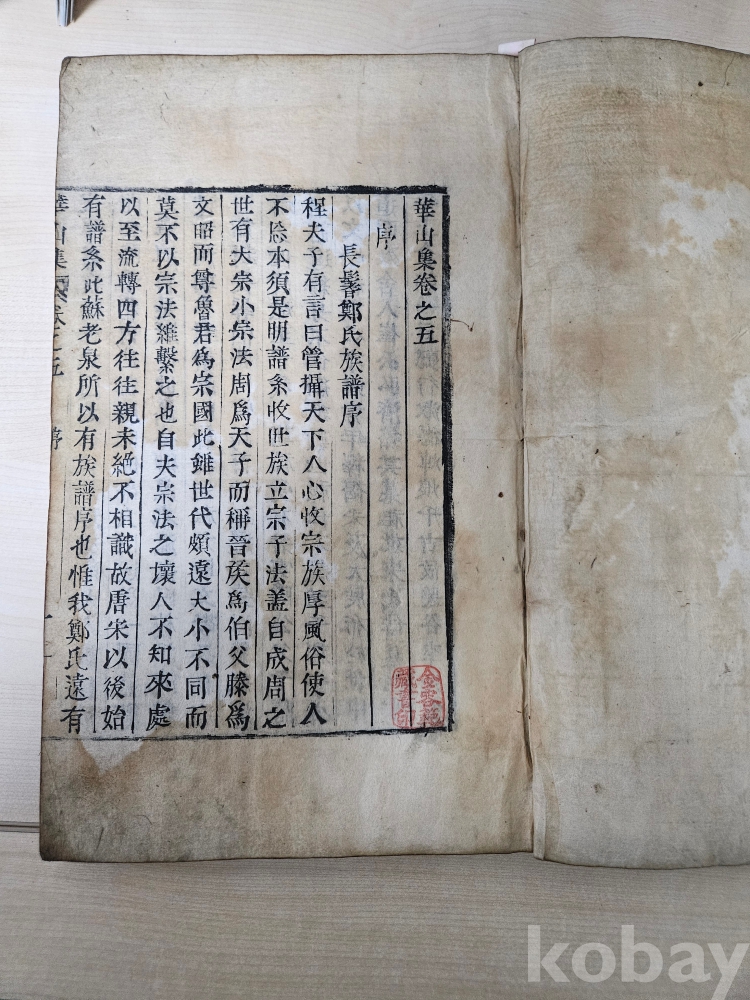 華山集卷之五
序
長鬐鄭氏族譜序
程夫子有言曰管攝天下人心收宗族厚風俗使人
不忘本須是明譜系收世族立宗子法盖自成周之
世有大宗小宗法周爲天子而稱晉侯爲伯父滕爲
文昭而尊魯君爲宗國此雖世代頗遠大小不同而
莫不以宗法維繫之也自夫宗法之壞人不知來處
以至流轉四方往往親未絶不相識故唐宋以後始
有譜系此蘇老泉所以有族譜序也惟我鄭氏遠有
華山集 卷之五 序 一
藏書印
kobay